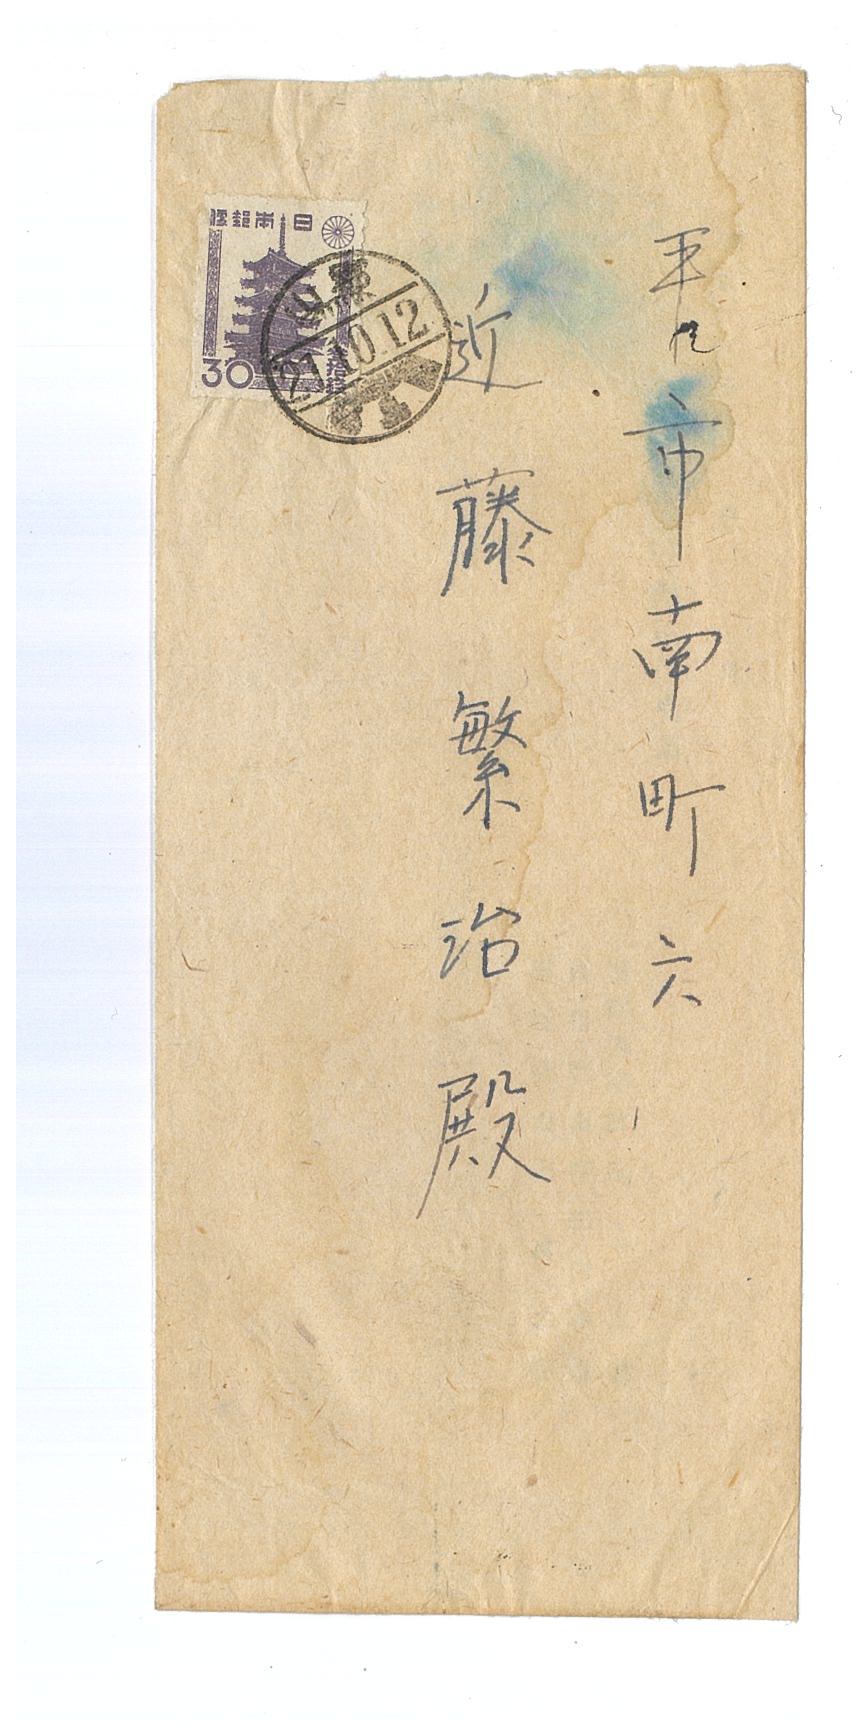 平市南町六
近藤繁治殿
日本郵便
30
21.10.12